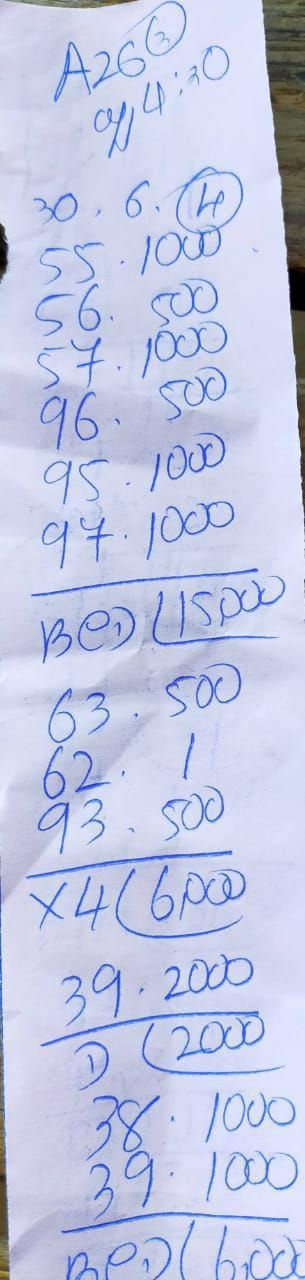 A26 ③
4:30
30. 6. ④
55. 1000
56. 500
57. 1000
96. 500
95. 1000
97. 1000
BCD (15,000
63. 500
62. 1
93. 500
X4 (6,000
39. 2000
D (2000
38. 1000
39. 1000
BCD (6,000